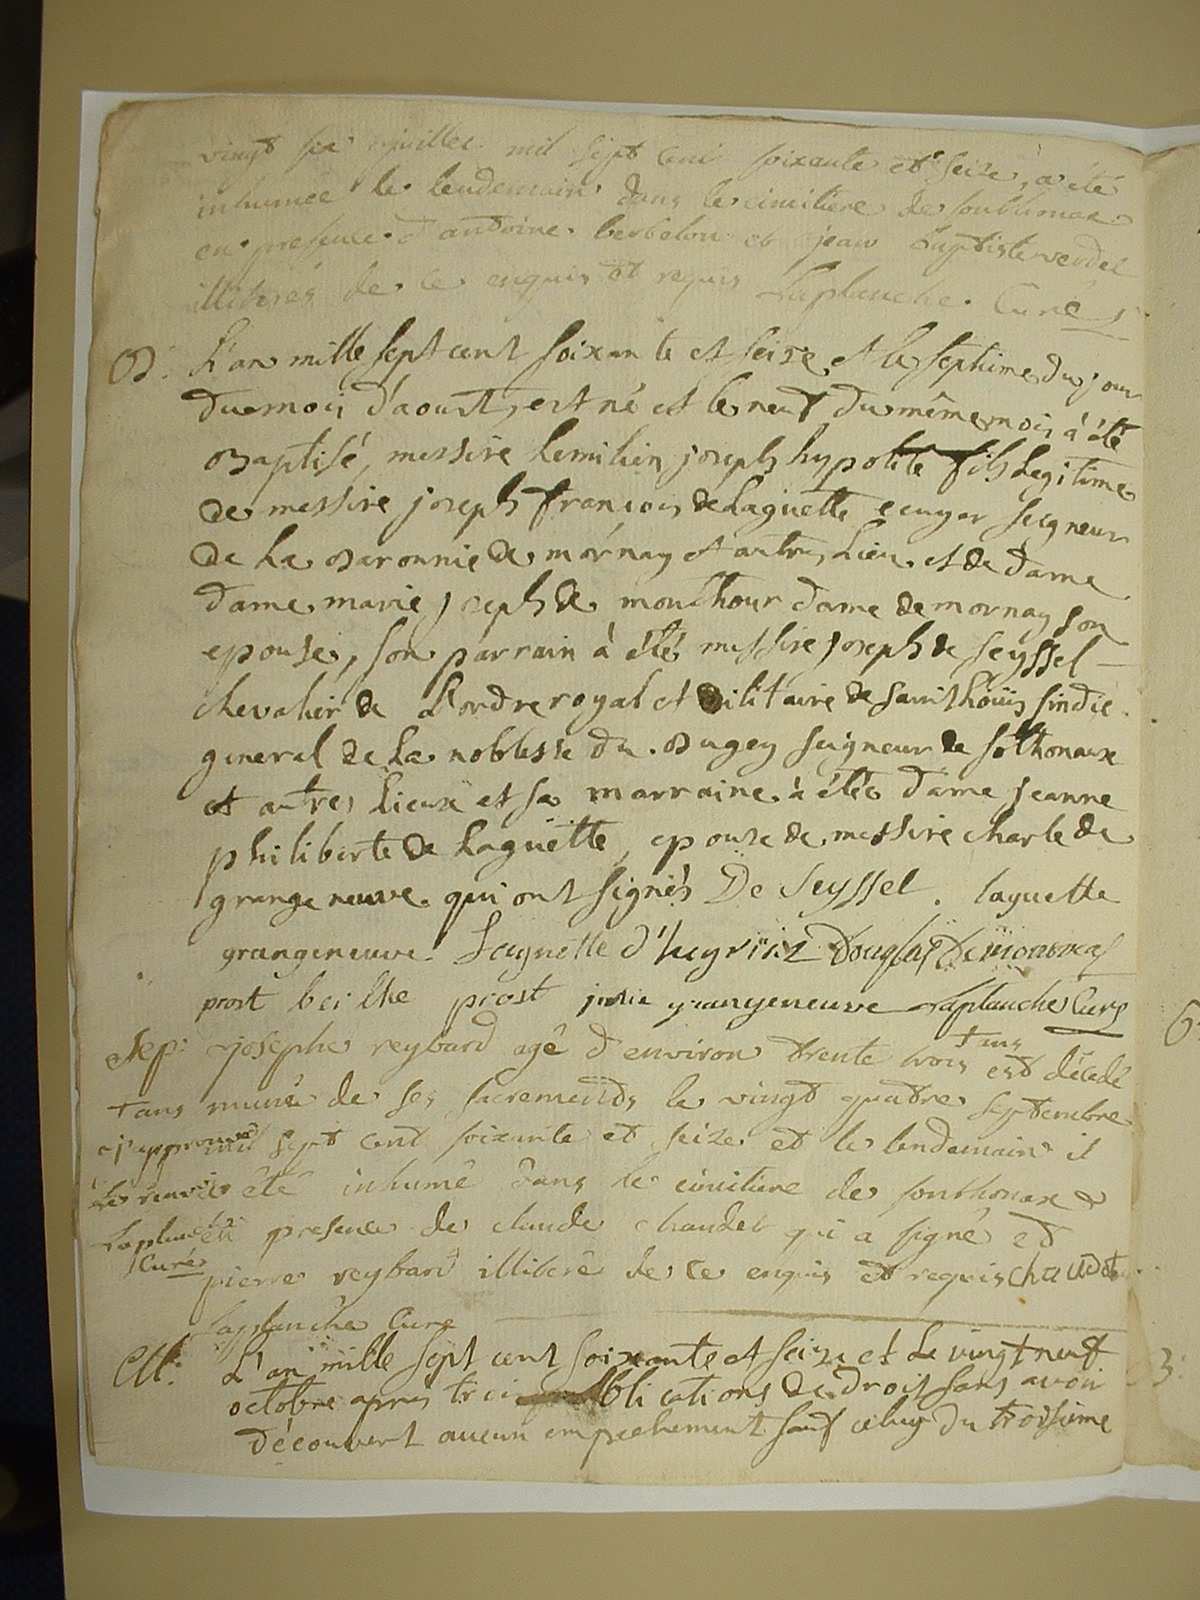 vingt six juillet mil sept cent soixante et seize, a été
inhumée le lendemain dans le cimitière de Sonthonax
en presence d'antoine berbelon et jean baptiste verdet
illiterés de ce enquis et requis Laplanche. Curé
B: L'an mille sept cent soixante et seize et le septime du jour
du mois d'aoust, est né et le neuf du même mois à été
Baptisé, messire hemilien joseph hypolite fils Legitime
de messire joseph françois de Laguette ecuyer seigneur
de La Baronnie de mornay et autres Lieu et de Dame
Dame marie joseph de monthour Dame de mornay son
epouse, son parrain à été messire joseph de seyssel
chevalier de L'ordre royal et militaire de saint Loüis sindic
general de La noblesse du Bugey seigneur de sothonaxe
et autres Lieux et sa marraine à étée Dame jeanne
philiberte de Laguëtte, epouse de messire charle de
grangeneuve qui ont signés De Seyssel. laguette
grangeneuve. Laguette d'heyriaz Douglas
prost prost julie grangeneuve Laplanche Curé
Sep: josephe reybard agé d'environ trente trois +ans est décedé
+ans muni de ses sacrements le vingt quatre septembre
j'approuve mil sept cent soixante et seize et le lendemain il
Le renvoi à été inhumé dans le cimitiere de sonthonax
Laplanche en presence de claude chaudet qui a signé et
Curé pierre reybard illiteré de ce enquis et requis chaudet
Laplanche Curé
M: L'an mille sept cent soixante et seize et Le vingt neuf
octobre apres trois publications de Droit sans avoir
découvert aucun empechement sauf celuy du troisieme